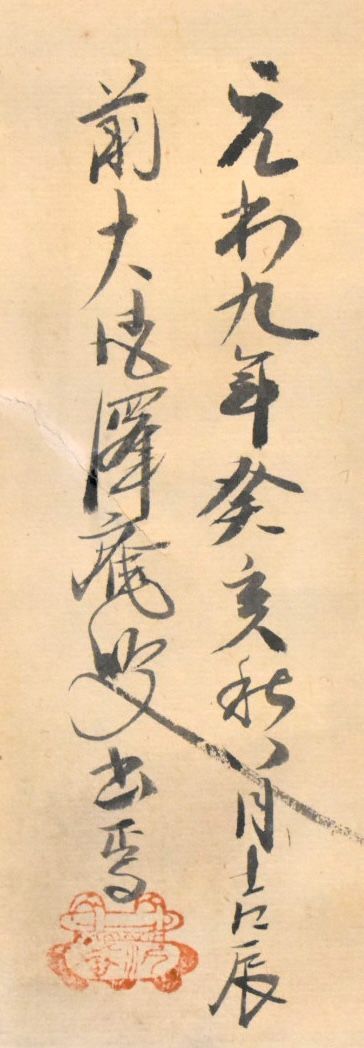 元和九年癸亥秋八月吉辰
前大徳澤庵叟書焉